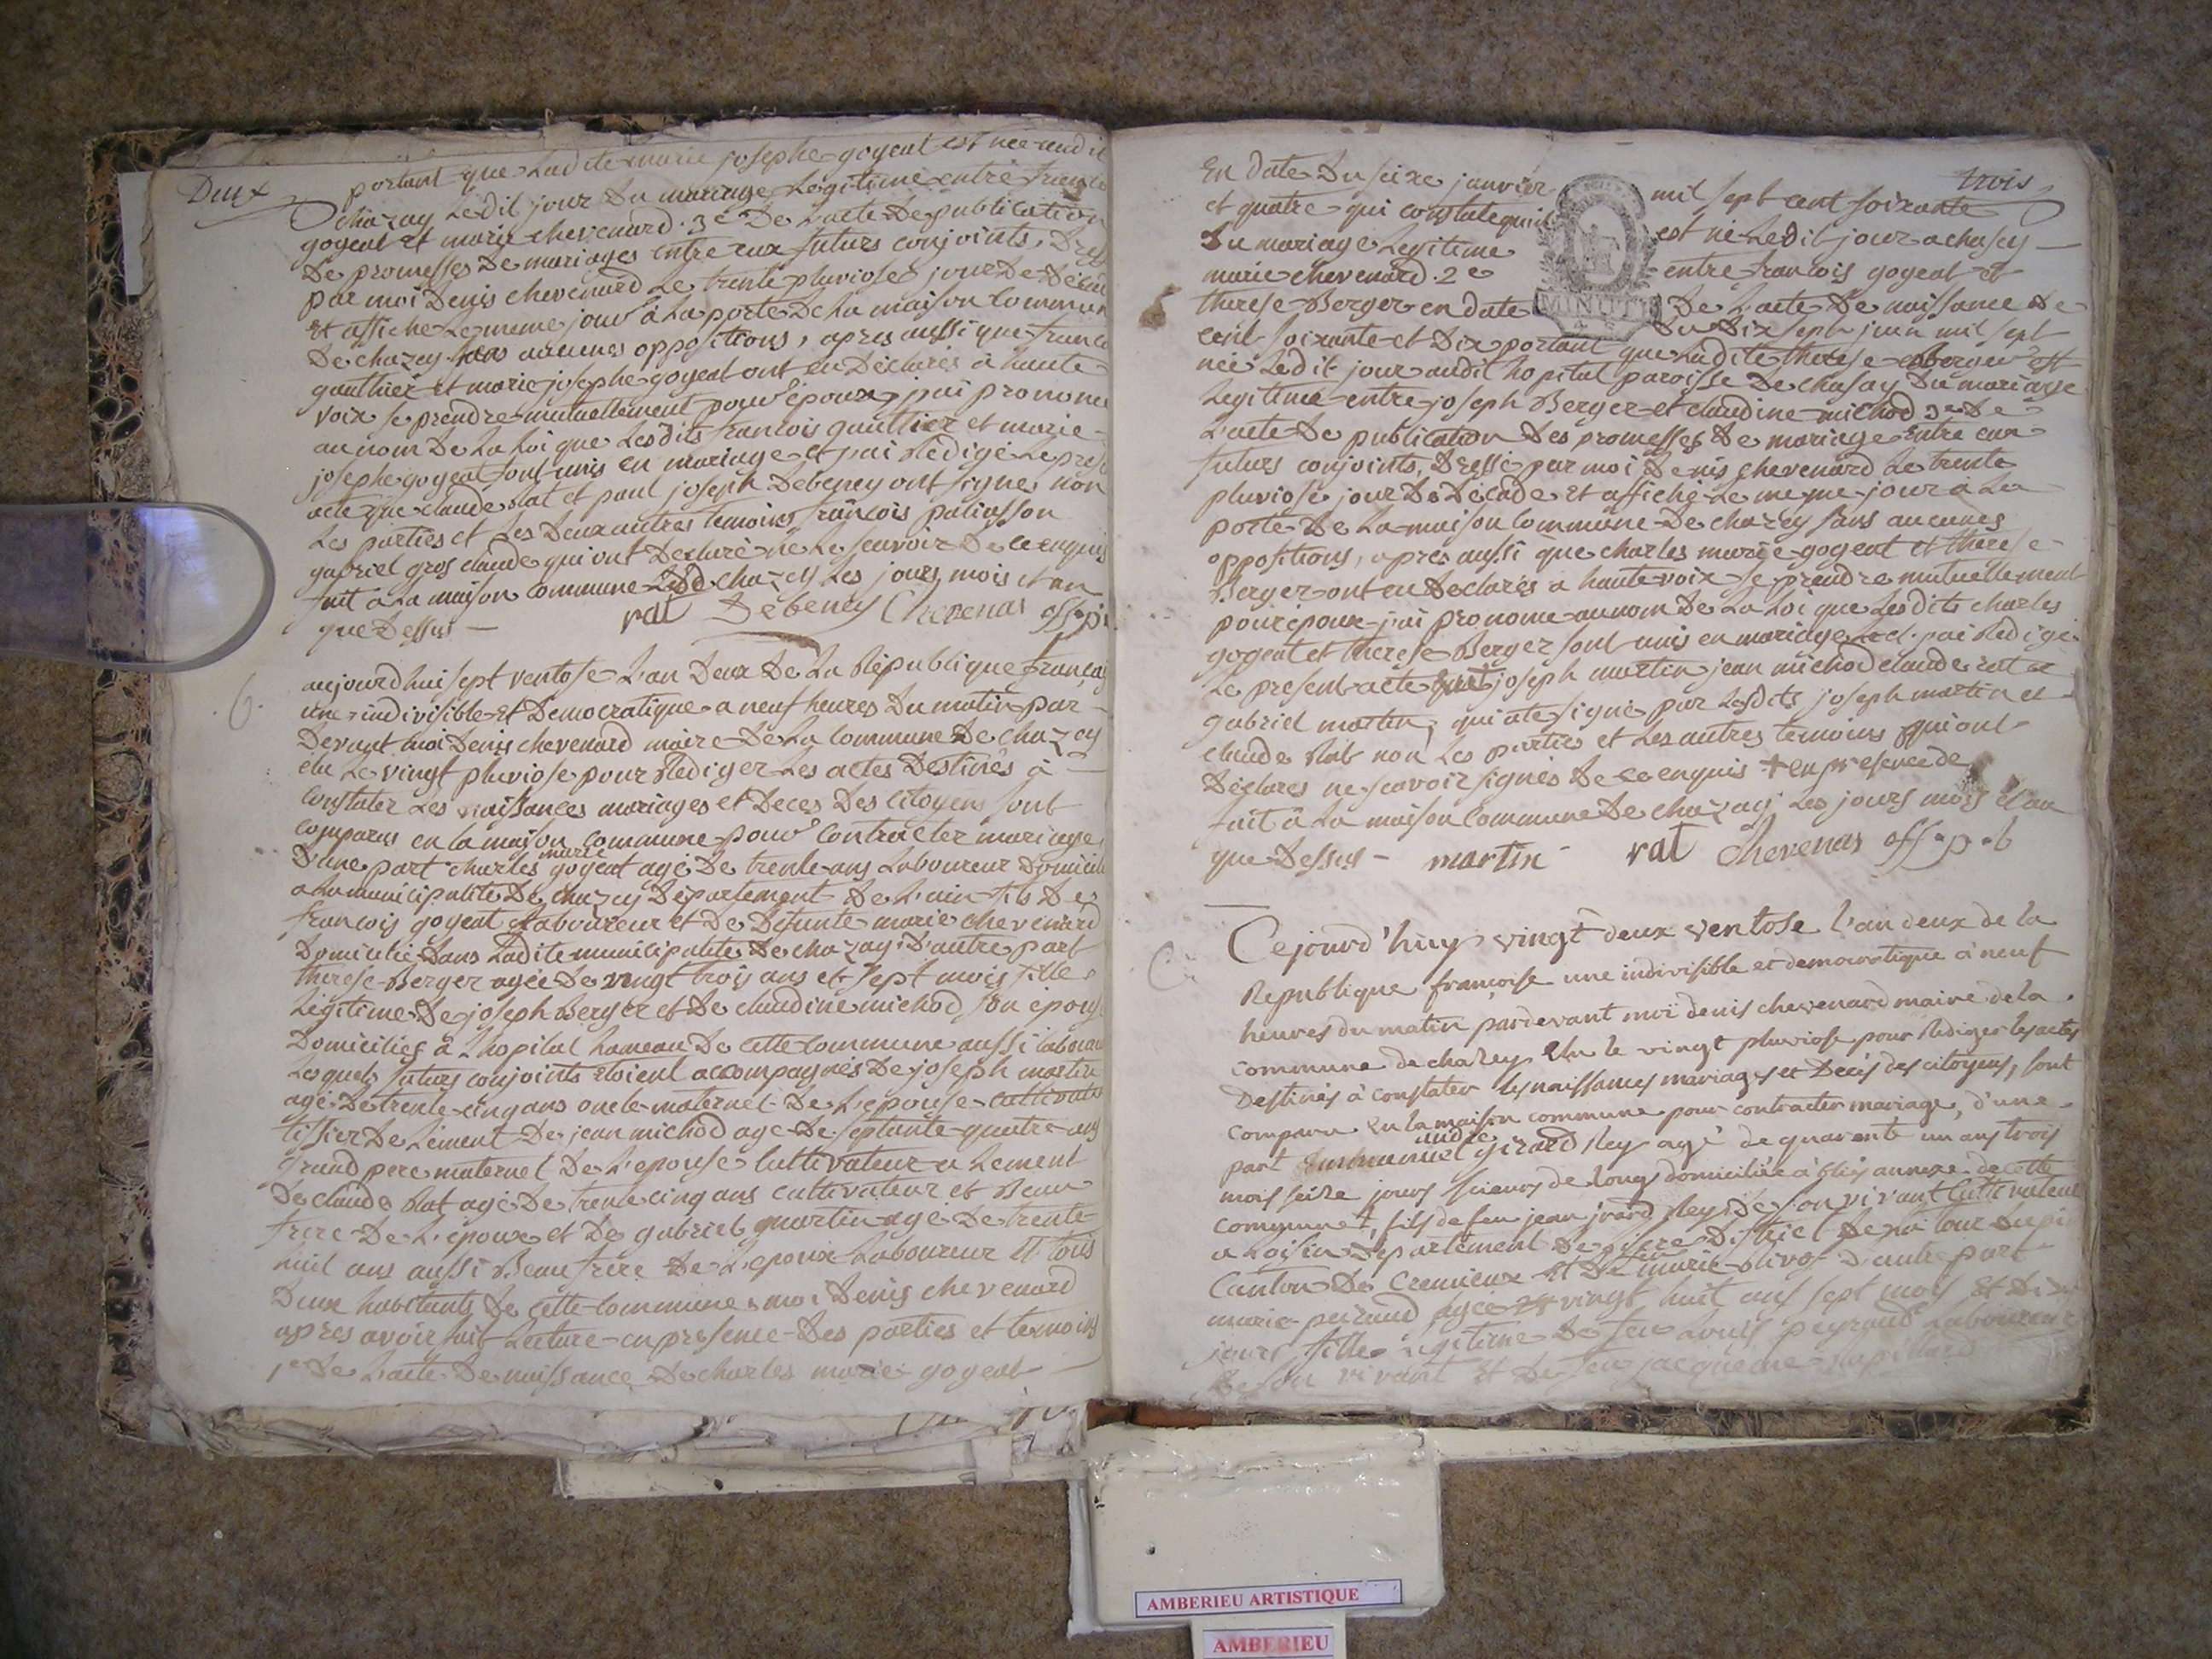 Deux
portant que Ladite marie josephe gogeat est née audit
chazay Ledit jour du mariage Légitime entre françois
gogeat et marie chevenard. 3e De L'acte de publication
De promesses De mariages entre eux futurs conjoints, Dressé
par moi Denis chevenard Le trente pluviose jour De Décade
Et affiché Le meme jour à La porte De La maison Commune
De chazey sans aucunes oppositions, apres aussi que françois
gauthier et marie josephe gogeat ont eu Déclarés à haute
voix se prendre mutuellement pour époux, j'ai prononcé
au nom De La Loi que Lesdits francois gauthier et marie
josephe gogeat sont unis en mariage et j'ai Rédigé Le present
acte que claude Rat et paul joseph Debeney ont signés non
Les parties et Les Deux autres temoins françois paliasson
gabriel gros claude qui ont Declaré ne Le scavoir De ce enquis
fait à La maison Commune De chazey Les jours mois et an
que Dessus —
rat Debeney Chevenas off. p.
6.
aujourdhui sept ventose L'an Deux De La République françoise
une indivisible et Democratique a neuf heures Du matin par
Devant moi Denis chevenard maire De La Commune De chazey
élu Le vingt pluviose pour Rédiger Les actes Destinés à
Constater Les naissances mariages et Deces Des Citoyens sont
comparus en la maison Commune pour Contracter mariage
D'une part charles marie gogeat agé De trente ans Laboureur Domicilié
a La municipalité De chazey Département De L'ain fils De
françois gogeat Laboureur et De Défunte marie chevenard
Domicilié Dans Ladite municipalité De chazay; D'autre part
therese Berger agée De vingt trois ans et sept mois fille
Légitime De joseph Berger et De claudine michod son épouse
Domiciliés à L'hopital hameau De Cette Commune aussi Laboureur
Lesquels futurs conjoints etoient accompagnés De joseph martin
agé De trente cinq ans oncle maternel De L'epouse Cultivateur
tissier De Lement De jean michod agé De septante quatre ans
grand pere maternel De L'epouse Cultivateur a Lement
De claude Rat agé De trente cinq ans cultivateur et Beau
frere De L'époux et De gabriel martin agé De trente
huit ans aussi Beau frere De L'epoux Laboureur Et tous
Deux habitants De Cette Commune, moi Denis chevenard
apres avoir fait Lecture en presence Des parties et temoins
1e De L'acte De naissance De charles marie gogeat
trois
En date du seize janvier mil sept cent soixante
et quatre qui constate qu'il est né Ledit jour a chasey
Du mariage Legitime entre francois gogeat et
marie chevenard. 2e De L'acte De naissance De
therese Berger en date Du Dix sept juin mil sept
cent soixante et Dix portant que Ladite therese Berger est
née Ledit jour audit hopital paroisse De chasay Du mariage
Legitime entre joseph Berger et claudine michod 3e De
L'acte De publication Des promesses De mariage Entre eux
futurs conjoints, Dressé par moi Denis chevenard Le trente
pluviose jour De Décade Et affiché Le meme jour à La
porte De La maison Commune De chazey sans aucunes
oppositions, apres aussi que charles marie gogeat et therese
Berger ont eu Declarés a haute voix se prendre mutuellement
pour époux j'ai prononcé au nom De La Loi que Lesdits charles
gogeat et therese Berger sont unis en mariage et j'ai Redigé
Le present acte joseph martin jean michod claude rat et
gabriel martin, qui a été signé par Lesdits joseph martin et
claude Rat non Les parties et Les autres temoins qui ont
Déclarés ne scavoir signés De ce enquis + en presence de
fait à La maison Commune De chazay Les jours mois et an
que Dessus – martin rat Chevenas off. p. b
MINUT
Cejourd'huy vingt deux ventose l'an deux de la
Republique françoise une indivisible et democratique à neuf
heures du matin pardevant moi denis chevenard maire de la
commune de chazey Elu le vingt pluviose pour Rediger les actes
Destinés à constater les naissances mariages et Décès des citoyens, sont
comparu En la maison commune pour contracter mariage, d'une
part Emmanuel andré girard Rey agé de quarante un ans trois
mois seize jours scieur de long domicilié à Blis annexe de cette
commune, fils de feu jean girard Rey De son vivant Cultivateur
a Loisin Département De District De La tour Dupin
Canton De Cremieux Et De marie olivos D'autre part
marie peiraud agée De vingt huit ans sept mois Et Dix
jours fille Légitime De feu Louis peyraud Laboureur
De son vivant Et De feu jacqueme
AMBERIEU ARTISTIQUE
AMBERIEU